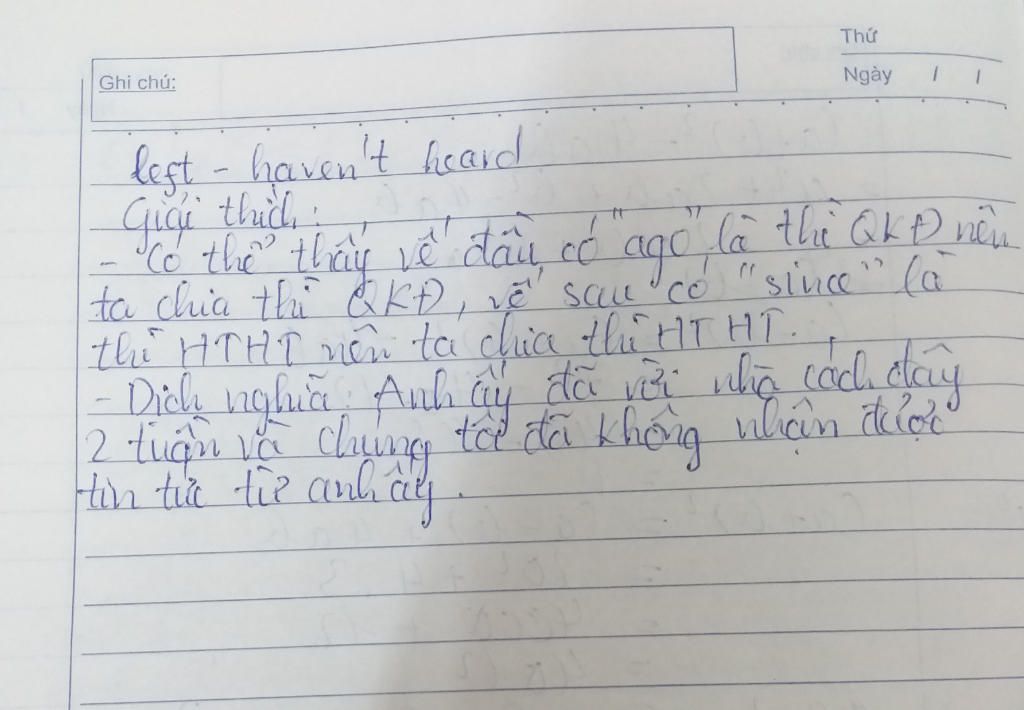 Thứ
Ghi chú:
Ngày / /
left - haven't heard
Giải thích:
- Có thể thấy vế đầu có "ago" là thì QKĐ nên
ta chia thì QKĐ, vế sau có "since" là
thì HTHT nên ta chia thì HTHT.
- Dịch nghĩa: Anh ấy đã rời nhà cách đây
2 tuần và chúng tôi đã không nhận được
tin tức từ anh ấy.